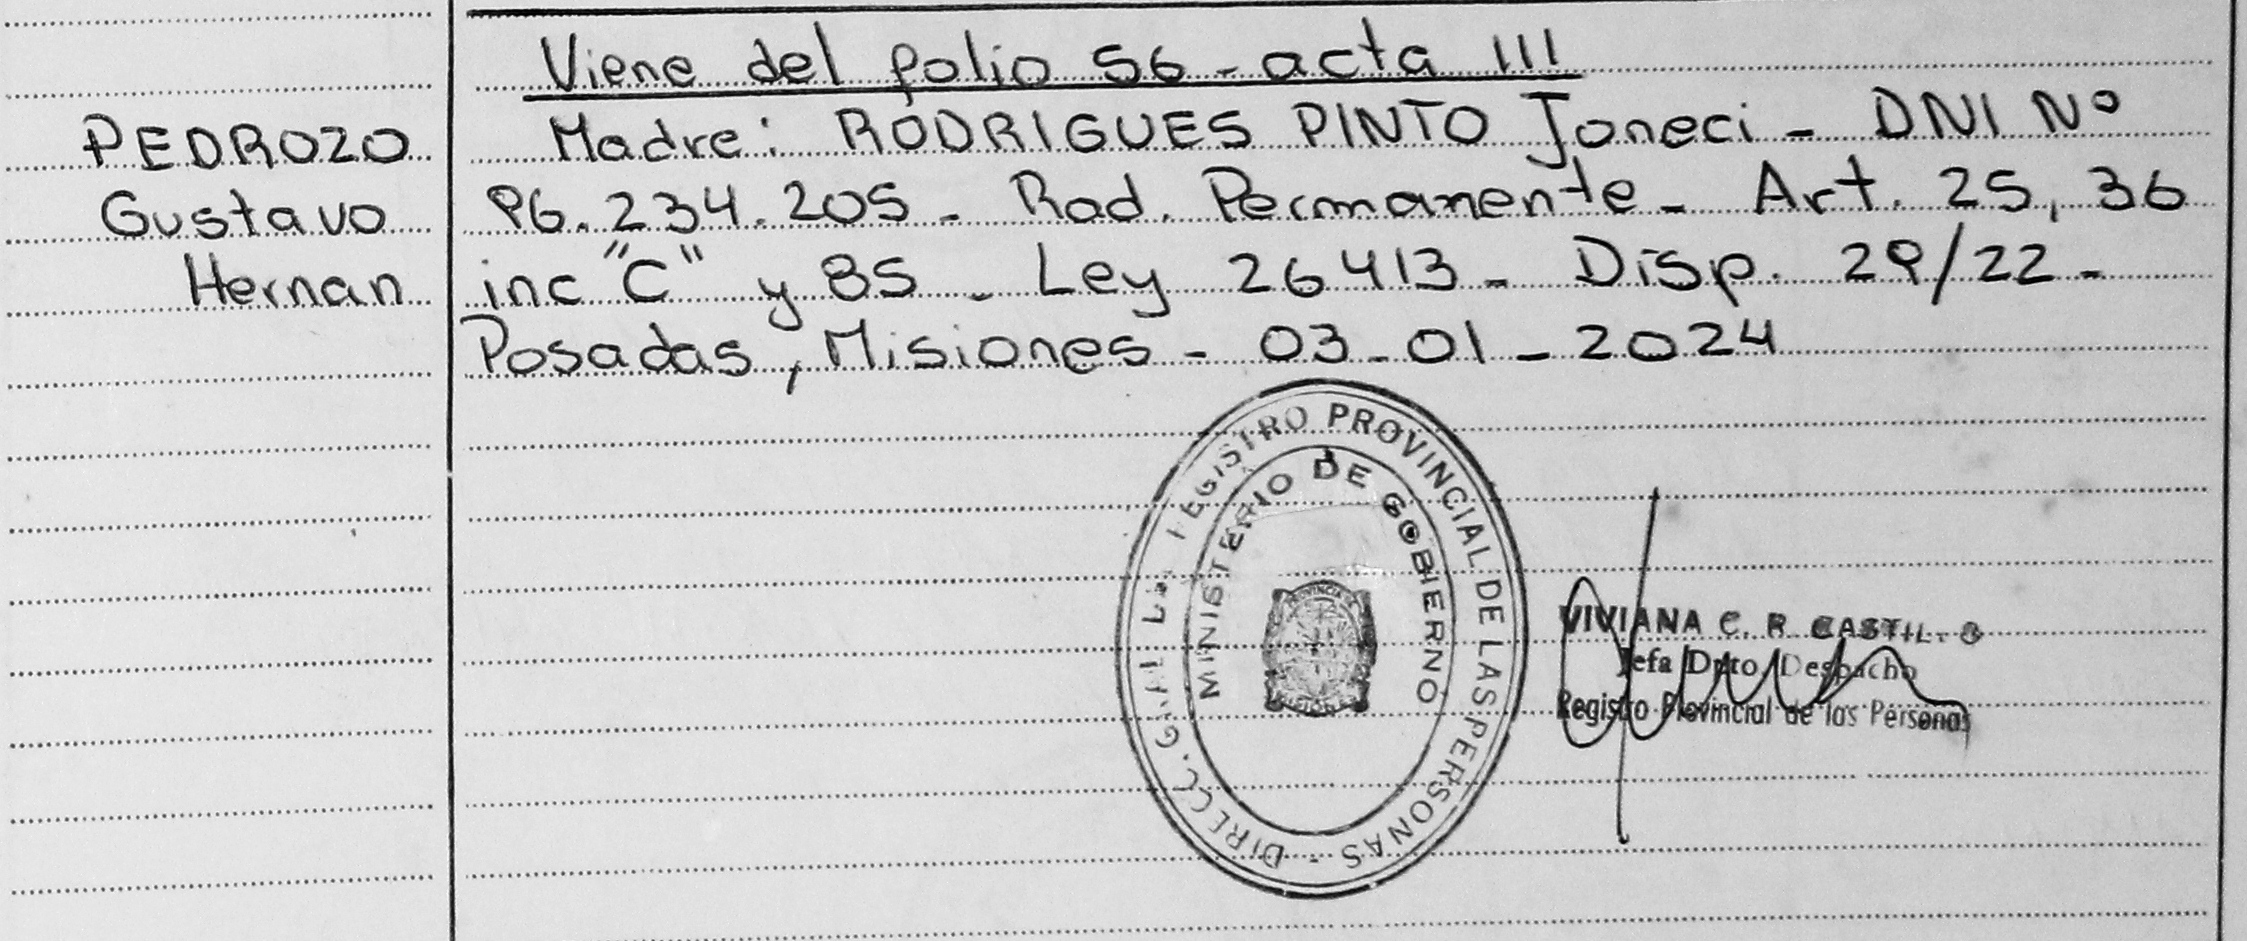 Viene del folio 56 - acta 111
PEDROZO
Gustavo
Hernan
Madre: RODRIGUES PINTO Joneci - DNI Nº
96.234.205 - Rad. Permanente - Art. 25, 36
inc "C" y 85 - Ley 26413 - Disp. 29/22 -
Posadas, Misiones - 03-01-2024
DIRECC. GRAL DEL REGISTRO PROVINCIAL DE LAS PERSONAS -
MINISTERIO DE GOBIERNO
VIVIANA C. R. CASTILLO
Jefa Dpto. Despacho
Registro Provincial de las Personas